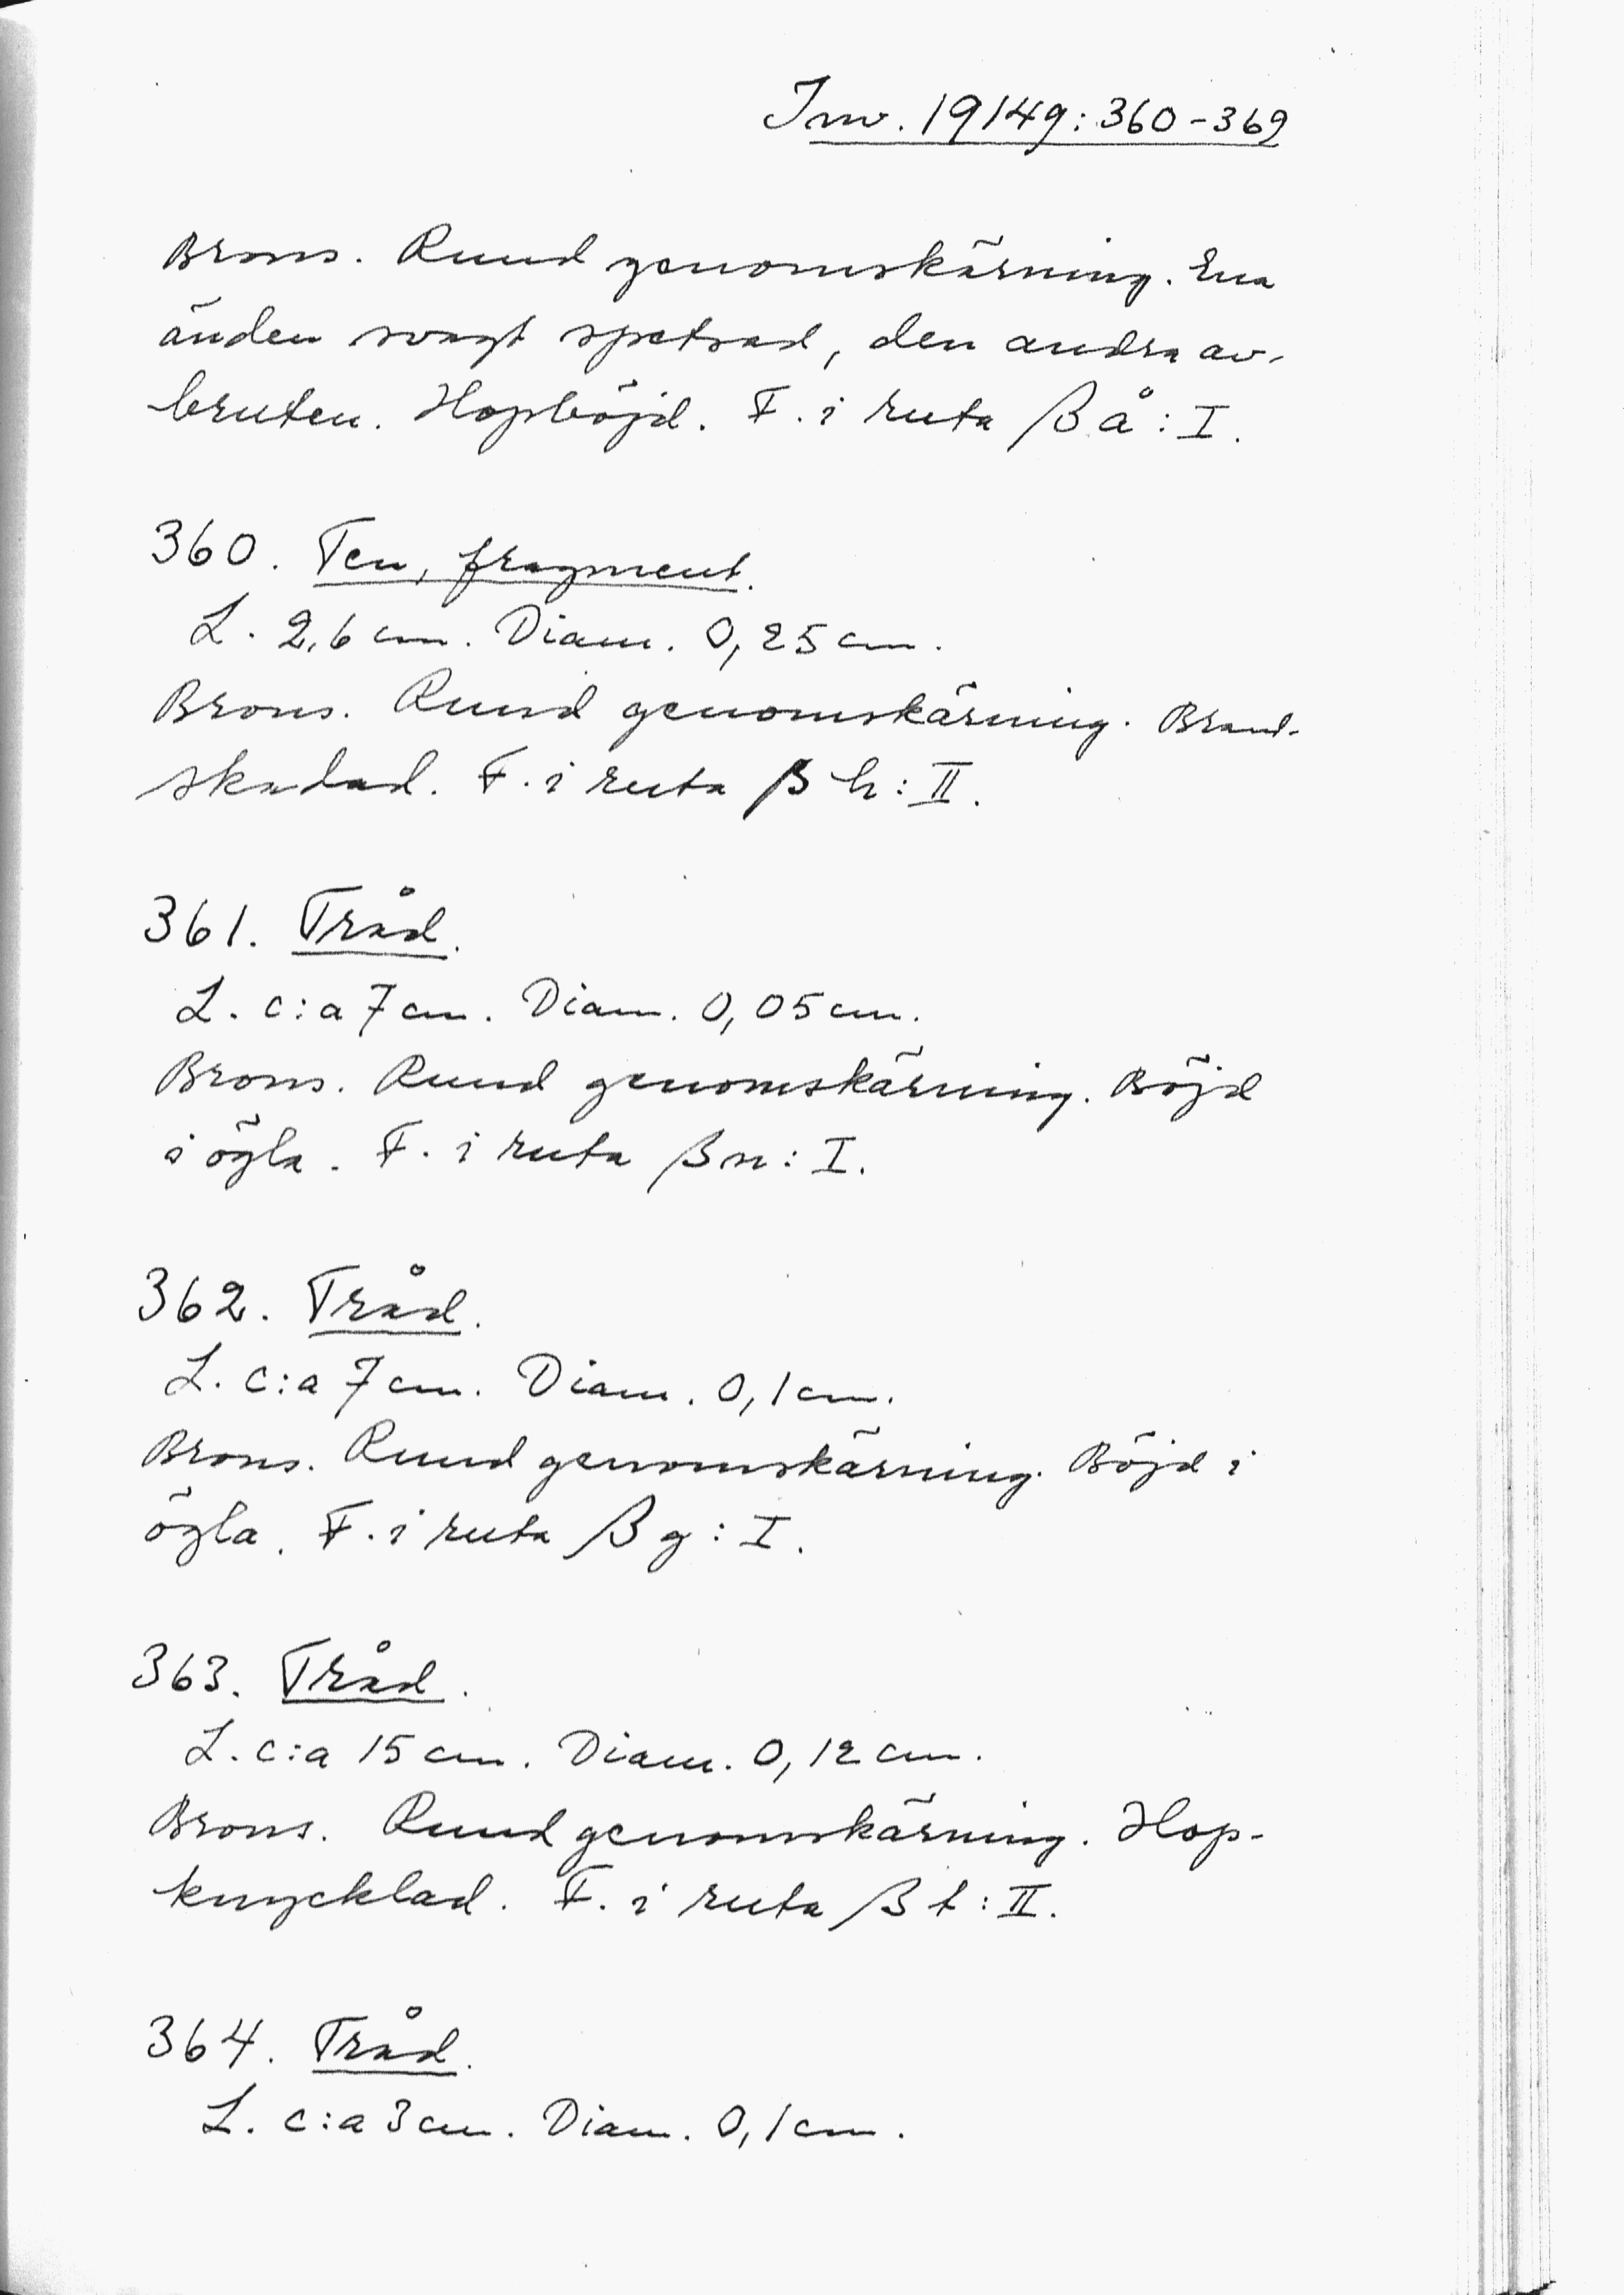 Inv. 19149:360-369
Brons. Rund genomskärning. Ena
änden svagt spetsad, den andra av-
bruten. Hopböjd. F. i ruta β å : I.
360. Ten, fragment.
L. 2,6 cm. Diam. 0,25 cm.
Brons. Rund genomskärning. Brand-
skadad. F. i ruta β h : II.
361. Tråd.
L. c:a 7 cm. Diam. 0,05 cm.
Brons. Rund genomskärning. Böjd
i ögla. F. i ruta β n : I.
362. Tråd.
L. c:a 7 cm. Diam. 0,1 cm.
Brons. Rund genomskärning. Böjd i
ögla. F. i ruta β g : I.
363. Tråd.
L. c:a 15 cm. Diam. 0,12 cm.
Brons. Rund genomskärning. Hop-
knycklad. F. i ruta β t : II.
364. Tråd.
L. c:a 3 cm. Diam. 0,1 cm.